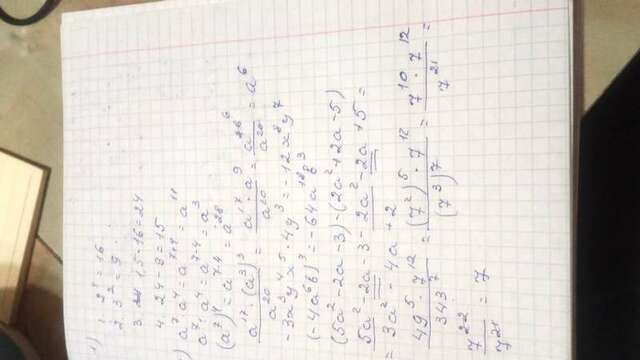 1) 1. 2⁴ = 16
2. 3² = 9
3. 1,5 · 16 = 24
4. 24 - 8 = 15
a⁷ · a⁴ = a⁷⁺⁴ = a¹¹
a⁷ : a⁴ = a⁷⁻⁴ = a³
(a⁷)⁴ = a⁷·⁴ = a²⁸
a¹⁷ · (a³)³ / a²⁰ = a¹⁷ · a⁹ / a²⁰ = a²⁶ / a²⁰ = a⁶
-3x³y⁴ · x⁵ · 4y³ = -12x⁸y⁷
(-4a⁶b)³ = -64a¹⁸b³
(5a² - 2a - 3) - (2a² + 2a - 5)
5a² - 2a - 3 - 2a² - 2a + 5 =
= 3a² - 4a + 2
49⁵ · 7¹² / 343⁷ = (7²)⁵ · 7¹² / (7³)⁷ = 7¹⁰ · 7¹² / 7²¹ =
7²² / 7²¹ = 7